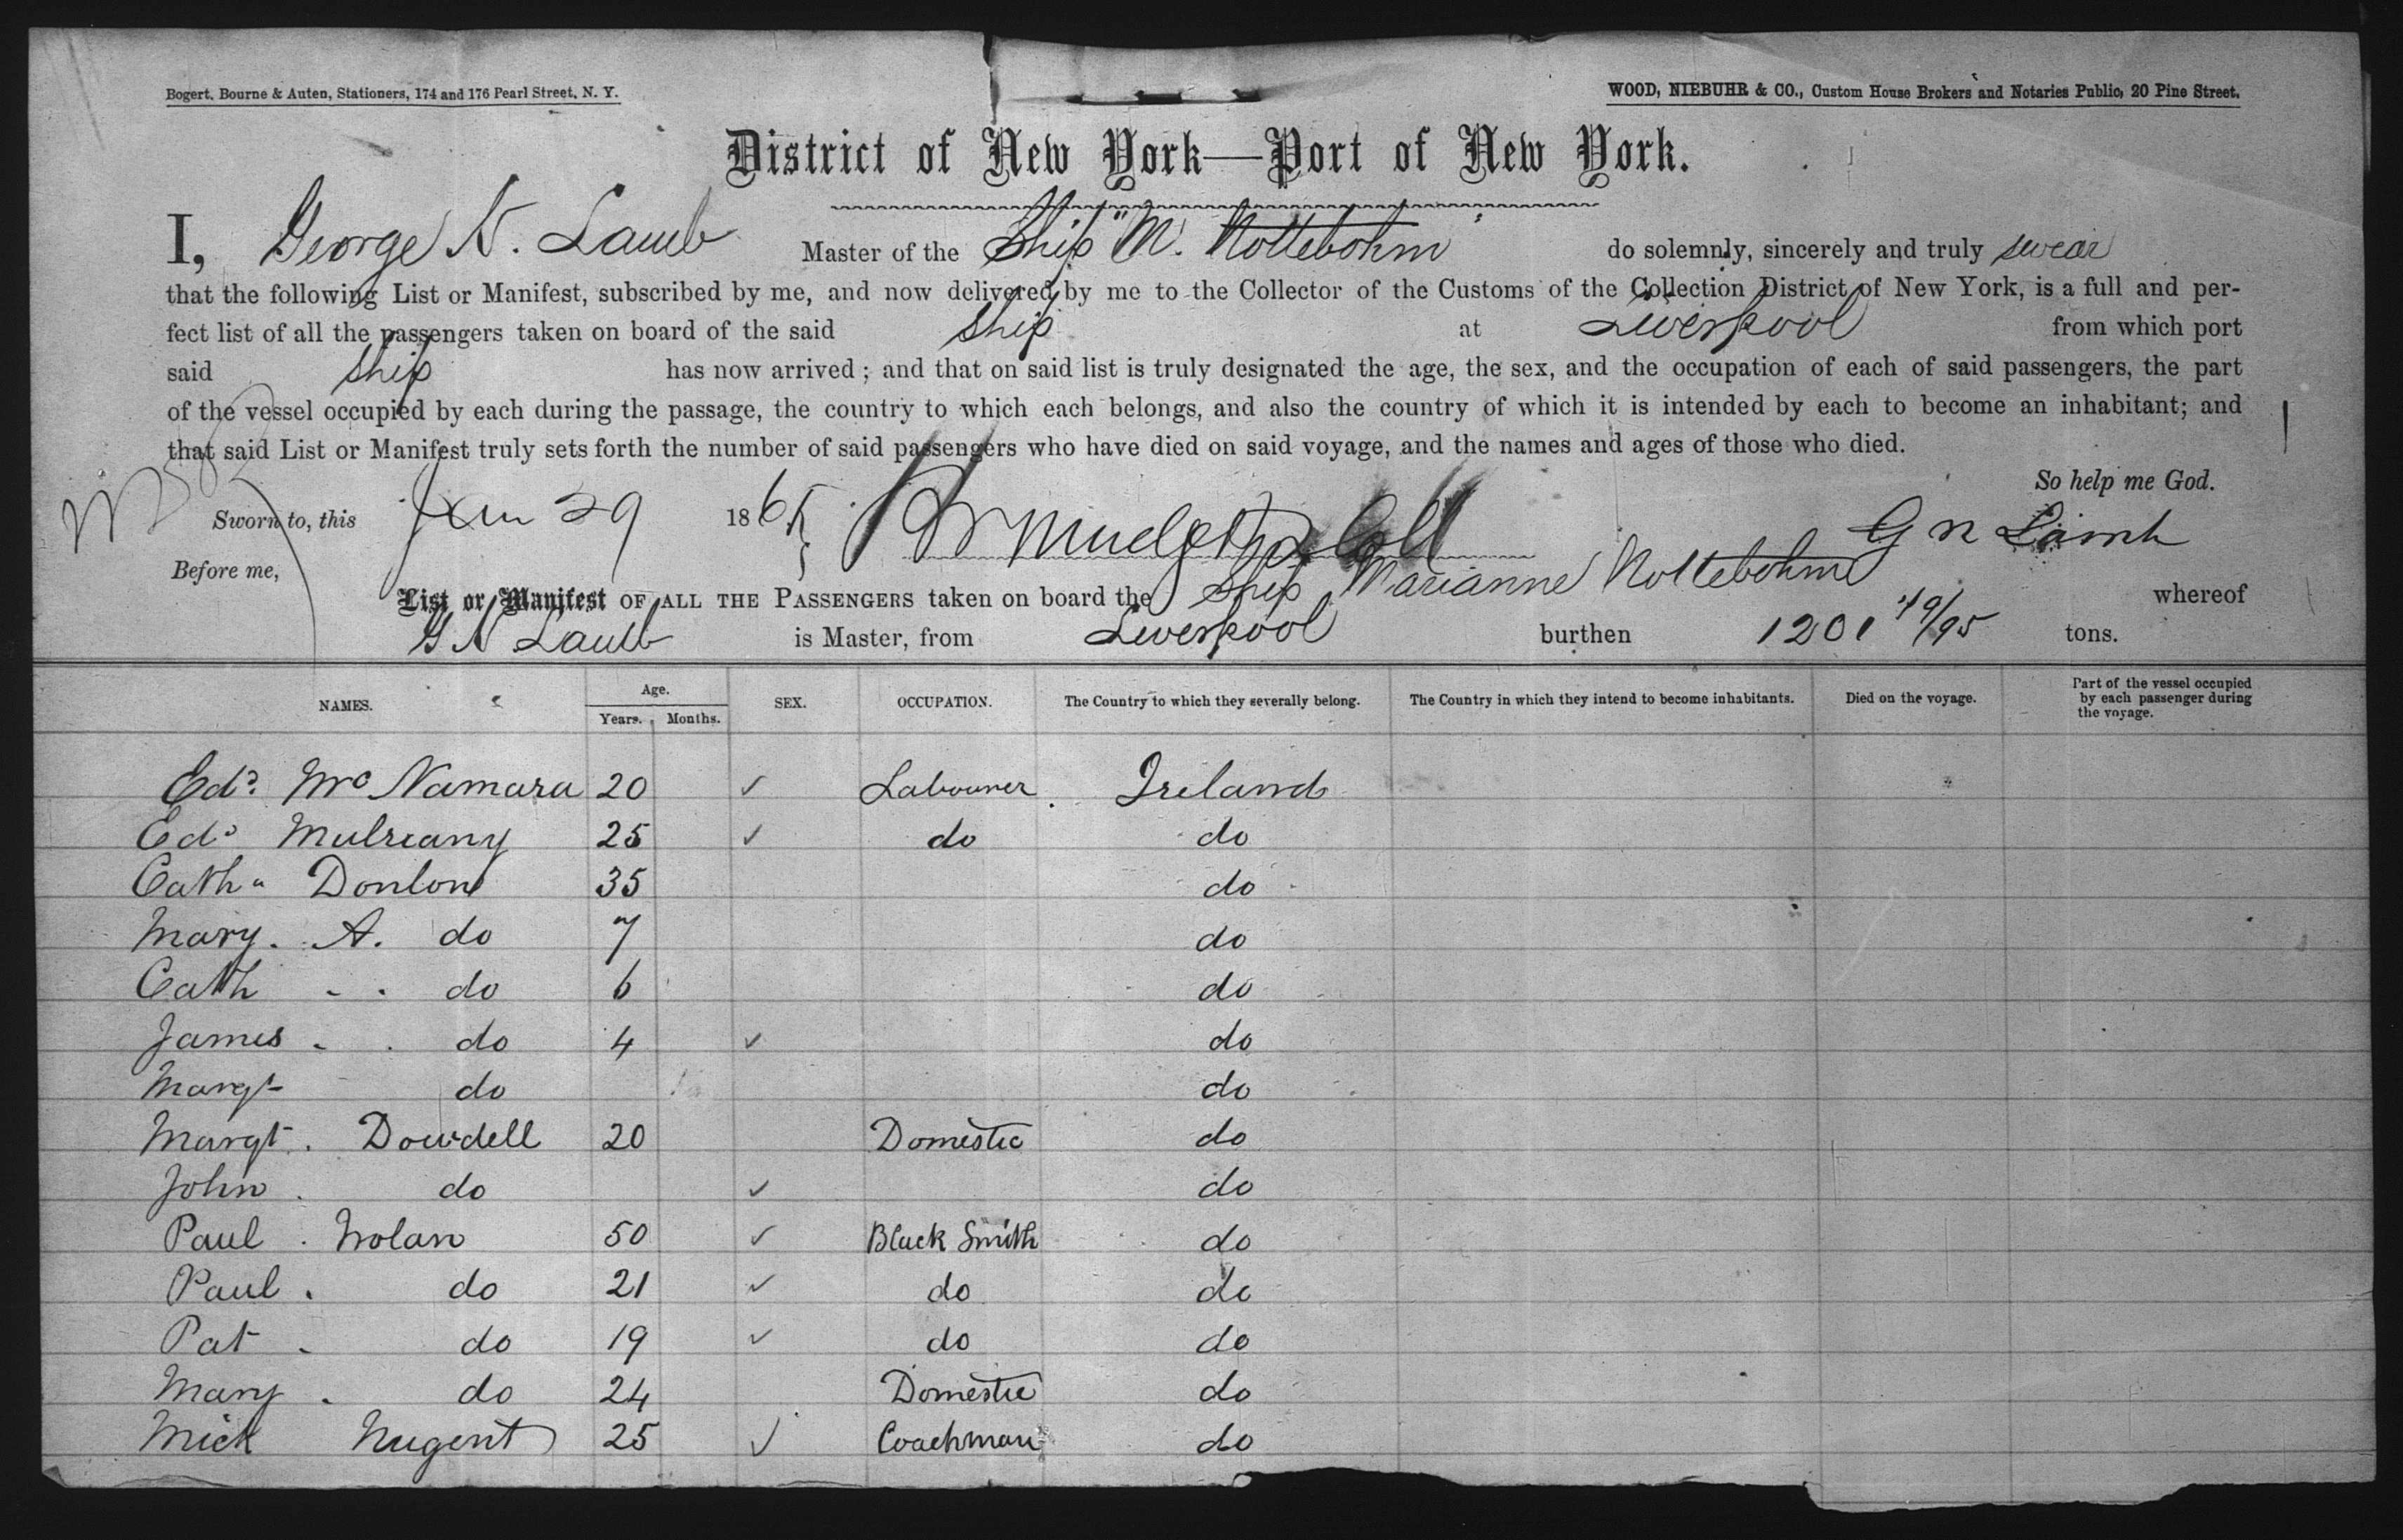 Bogert, Bourne & Auten, Stationers, 174 and 176 Pearl Street, N. Y.
WOOD, NIEBUHR & CO., Custom House Brokers and Notaries Public, 20 Pine Street.
District of New York—Port of New York.
I, George N. Lamb Master of the Ship "M. Nottebohm" do solemnly, sincerely and truly swear
that the following List or Manifest, subscribed by me, and now delivered by me to the Collector of the Customs of the Collection District of New York, is a full and per-
fect list of all the passengers taken on board of the said ship at Liverpool from which port
said ship has now arrived; and that on said list is truly designated the age, the sex, and the occupation of each of said passengers, the part
of the vessel occupied by each during the passage, the country to which each belongs, and also the country of which it is intended by each to become an inhabitant; and
that said List or Manifest truly sets forth the number of said passengers who have died on said voyage, and the names and ages of those who died.
So help me God.
Sworn to, this Jan 29 1865 G N Lamb
Before me,
List or Manifest OF ALL THE PASSENGERS taken on board the Ship Marianne Nottebohm whereof
G N Lamb is Master, from Liverpool burthen 1201 49/95 tons.
NAMES. Age. Years. Months. SEX. OCCUPATION. The Country to which they severally belong. The Country in which they intend to become inhabitants. Died on the voyage. Part of the vessel occupied by each passenger during the voyage.
Edd. McNamara 20 ✓ Labourer Ireland
Edd. Mulreany 25 ✓ do do
Catha Donlon 35 do
Mary. A. do 7 do
Cath do 6 do
James do 4 ✓ do
Margt do do
Margt. Dowdell 20 Domestic do
John. do ✓ do
Paul. Nolan 50 ✓ Black Smith do
Paul. do 21 ✓ do do
Pat do 19 ✓ do do
Mary. do 24 Domestic do
Mick Nugent 25 ✓ Coachman do